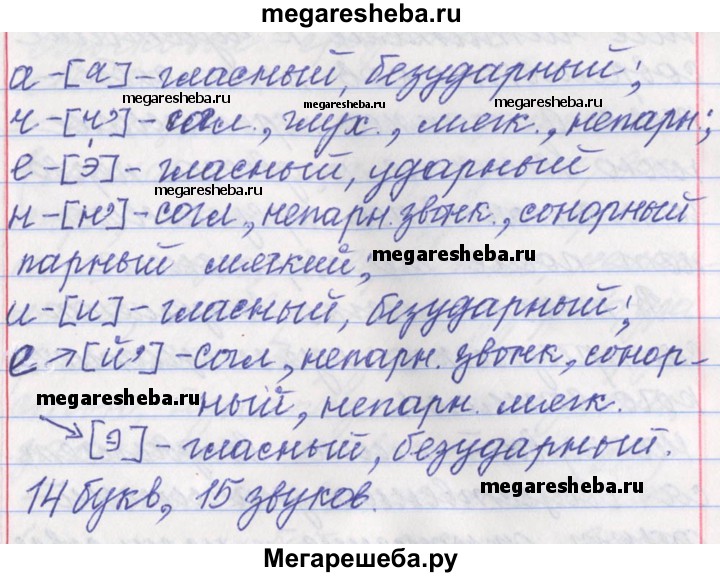 megaresheba.ru
а-[а]-гласный, безударный;
megaresheba.ru megaresheba.ru megaresheba.ru
ч-[ч']-согл., глух., мягк., непарн.;
е-[э́]-гласный, ударный
megaresheba.ru
н-[н']-согл, непарн. звонк., сонорный
парный мягкий;
megaresheba.ru
и-[и]-гласный, безударный;
е→[й']-согл, непарн. звонк, сонор-
megaresheba.ru
ный, непарн. мягк.
→[э]-гласный, безударный.
14 букв, 15 звуков.
megaresheba.ru
Мегарешеба.ру